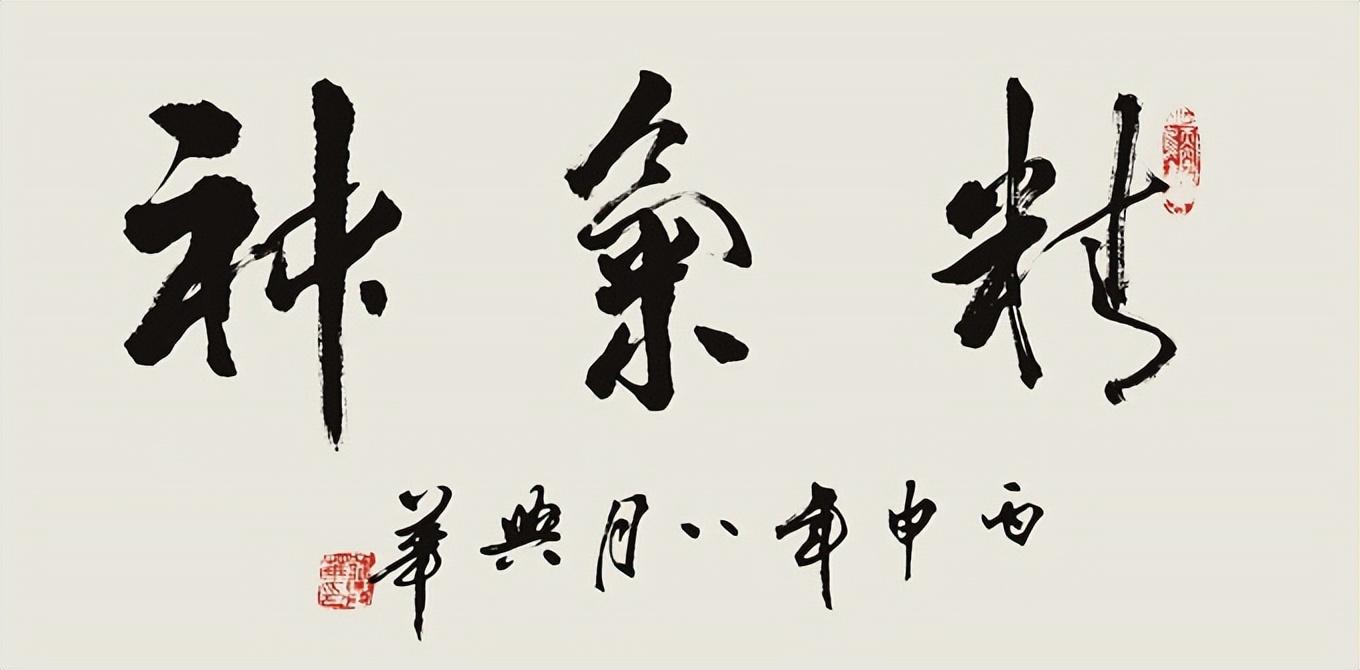 精氣神
丙申年八月興華